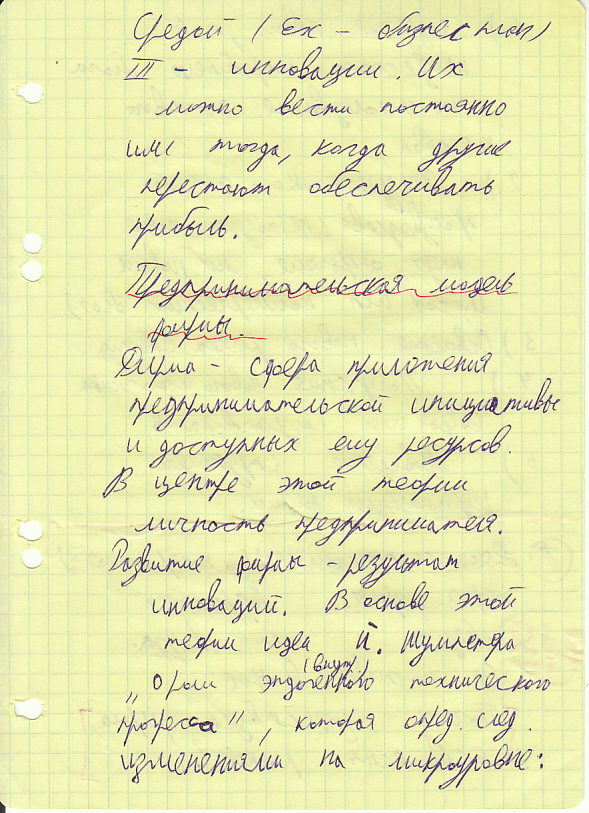 средой (Ex – бизнес план)
III – инновации. Их
можно вести постоянно
или тогда, когда другие
перестают обеспечивать
прибыль.
Предпринимательская модель
фирмы.
Фирма – сфера приложения
предпринимательской инициативы
и доступных ему ресурсов.
В центре этой теории
личность предпринимателя.
Развитие фирмы – результат
инноваций. В основе этой
теории идея Й. Шумпетера
(внут.)
„О роли эндогенного технического
прогресса", которая опред. след.
изменениями на микроуровне: